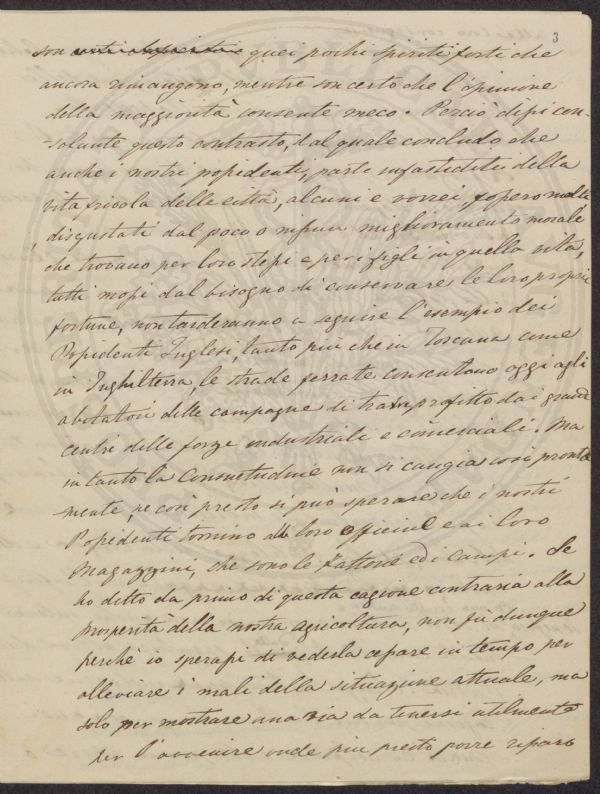 3
son quei pochi spiriti forti che
ancora rimangono, mentre son certo che l'opinione
della maggiorità consente meco. Perciò dissi con-
-solante questo contrasto, dal quale concludo che
anche i nostri possidenti, parte infastiditi della
vita frivola delle città, alcuni e vorrei, fossero molti
disgustati dal poco o nissun miglioramento morale
che trovano per loro stessi e per i figli in quella vita,
tutti mossi dal bisogno di conservare le loro proprie
fortune, non tarderanno a seguire l'esempio dei
Possidenti Inglesi, tanto più che in Toscana come
in Inghilterra, le strade ferrate consentono oggi agli
abitatori delle campagne di trar profitto dai grandi
centri delle forze industriali e comerciali. Ma
in tanto la Consuetudine non si cangia così pronta
mente, ne così presto si può sperare che i nostri
Possidenti tornino alle loro officine e ai loro
Magazzini, che sono le Fattorie ed i Campi. Se
ho detto da primo di questa cagione contraria alla
prosperità della nostra agricoltura, non fu dunque
perchè io sperassi di vederla cessare in tempo per
alleviare i mali della situazione attuale, ma
solo per mostrare una via da tenersi utilmente
per l'avvenire onde più presto porre riparo